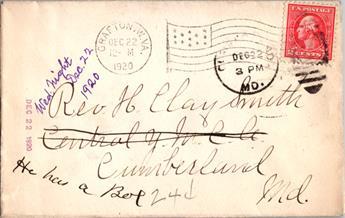 GRAFTON, W.VA.
DEC 22
12 M
1920
U.S. POSTAGE
2 CENTS 2
DEC 22
3 PM
MD.
Wed Night
Dec. 22
1920
DEC 22 1920
Rev. H. Clay Smith
Central Y.M.C.A.
Cumberland
Md.
He has a Box 24